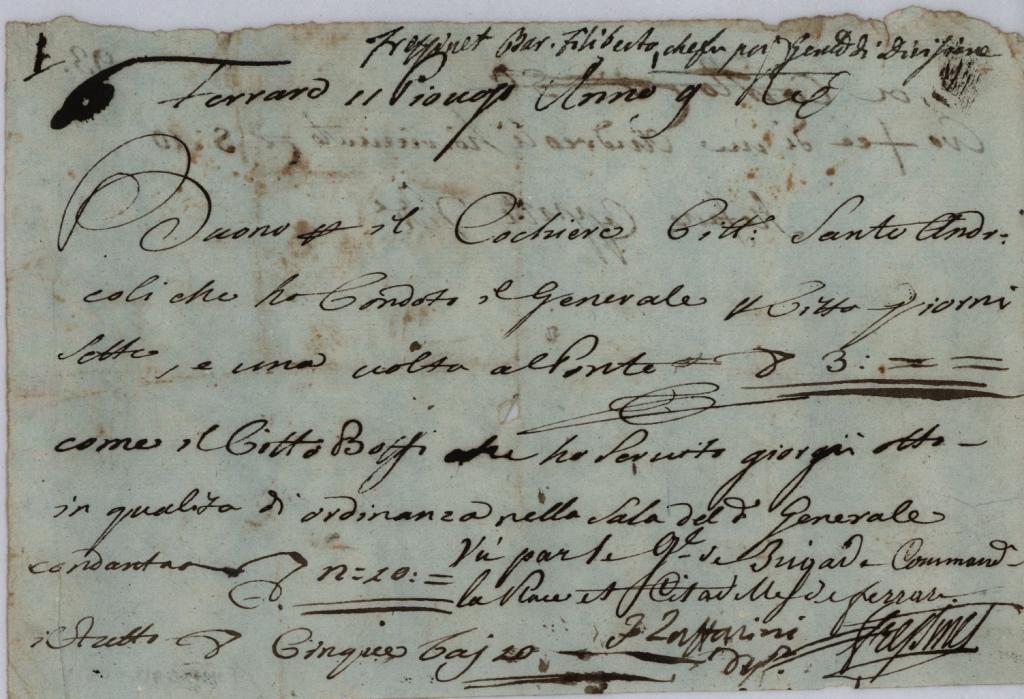 1
Fressinet Bar. Filiberto, che fu poi Genle di Divisione
Ferrara 11 Piovoso Anno 9 Re
Buono il Cochiere Citt: Santo Andr-
coli che ho Condoto il Generale Citta giorni
sette, e una volta al Ponte 3: = =
come il Citto Bossi che ho servito giorni otto -
in qualita di ordinanza nella Sala del d Generale
n=20:=
Vu par le Gl de Brigade Command
la Place et Citadelle de ferrare
il tutto Cinque baj 20
F Zaffarini
Fressinet